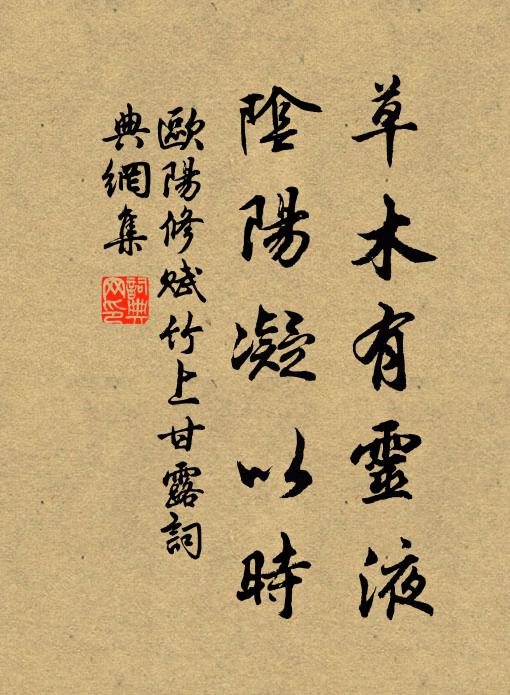 草木有靈液
陰陽凝以時
歐陽修賦竹上甘露詞
典網集
詞典
网印